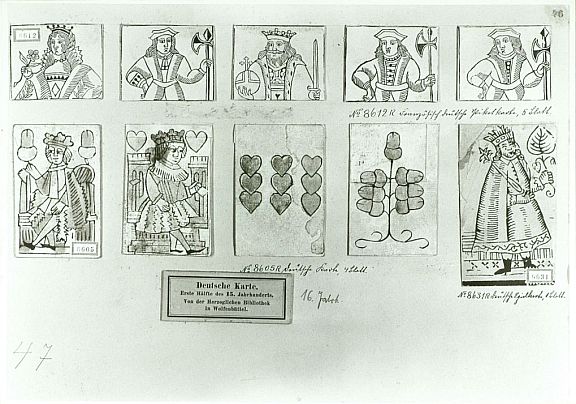 76
8612
No 8612 R französisch deutsche Pikettkarte, 5 Blatt.
8605
No 8605 R deutsche Karte, 4 Blatt.
8631
No 8631 R deutsche Spielkarte, 1 Blatt.
Deutsche Karte.
Erste Hälfte des 15. Jahrhunderts.
Von der Herzoglichen Bibliothek
in Wolfenbüttel.
16. Jahrh
47